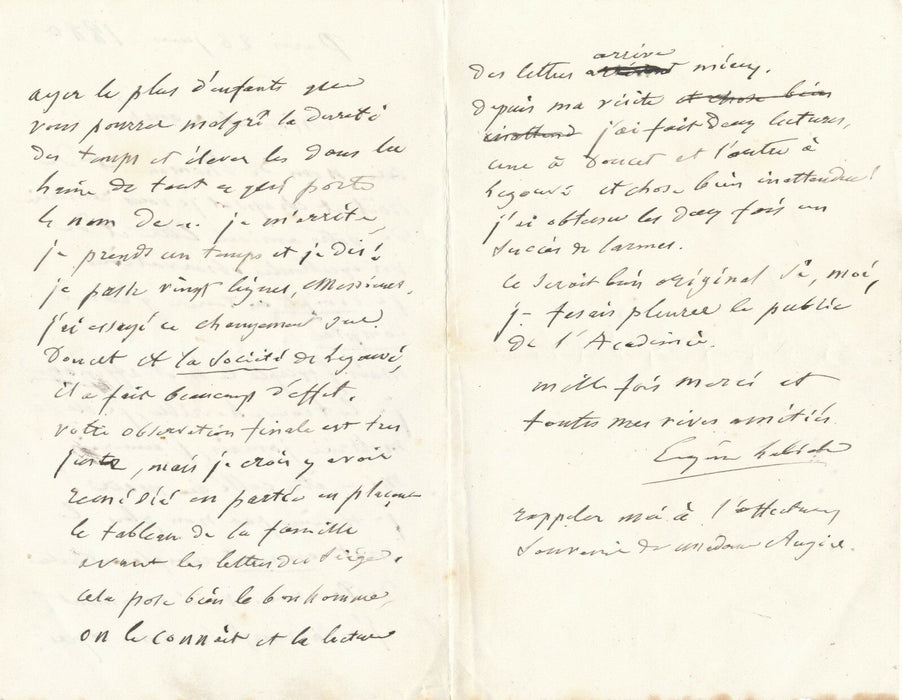 ayez le plus d'enfants que
vous pourrez malgré la dureté
des temps et élevez les dans la
haine de tout ce qui porte
le nom de … je m'arrête,
je prends un temps et je dis:
je passe vingt lignes, Messieurs.
j'ai essayé ce changement sur
Doucet et la société de Legouvé,
il a fait beaucoup d'effet.
votre observation finale est très
juste, mais je crois y avoir
remédié en partie en plaçant
le tableau de la famille
avant les lettres du siège.
cela pose bien le bonhomme,
on le connait et la lecture
des lettres arrive mieux.
depuis ma visite et chose bien
inattend j'ai fait deux lectures,
une à Doucet et l'autre à
Legouvé et chose bien inattendue!
j'ai obtenu les deux fois un
succès de larmes.
ce serait bien original si, moi,
je faisais pleurer le public
de l'Académie.
mille fois merci et
toutes mes vives amitiés
Eugène Labiche
rappelez moi à l'affectueux
souvenir de madame Augier.